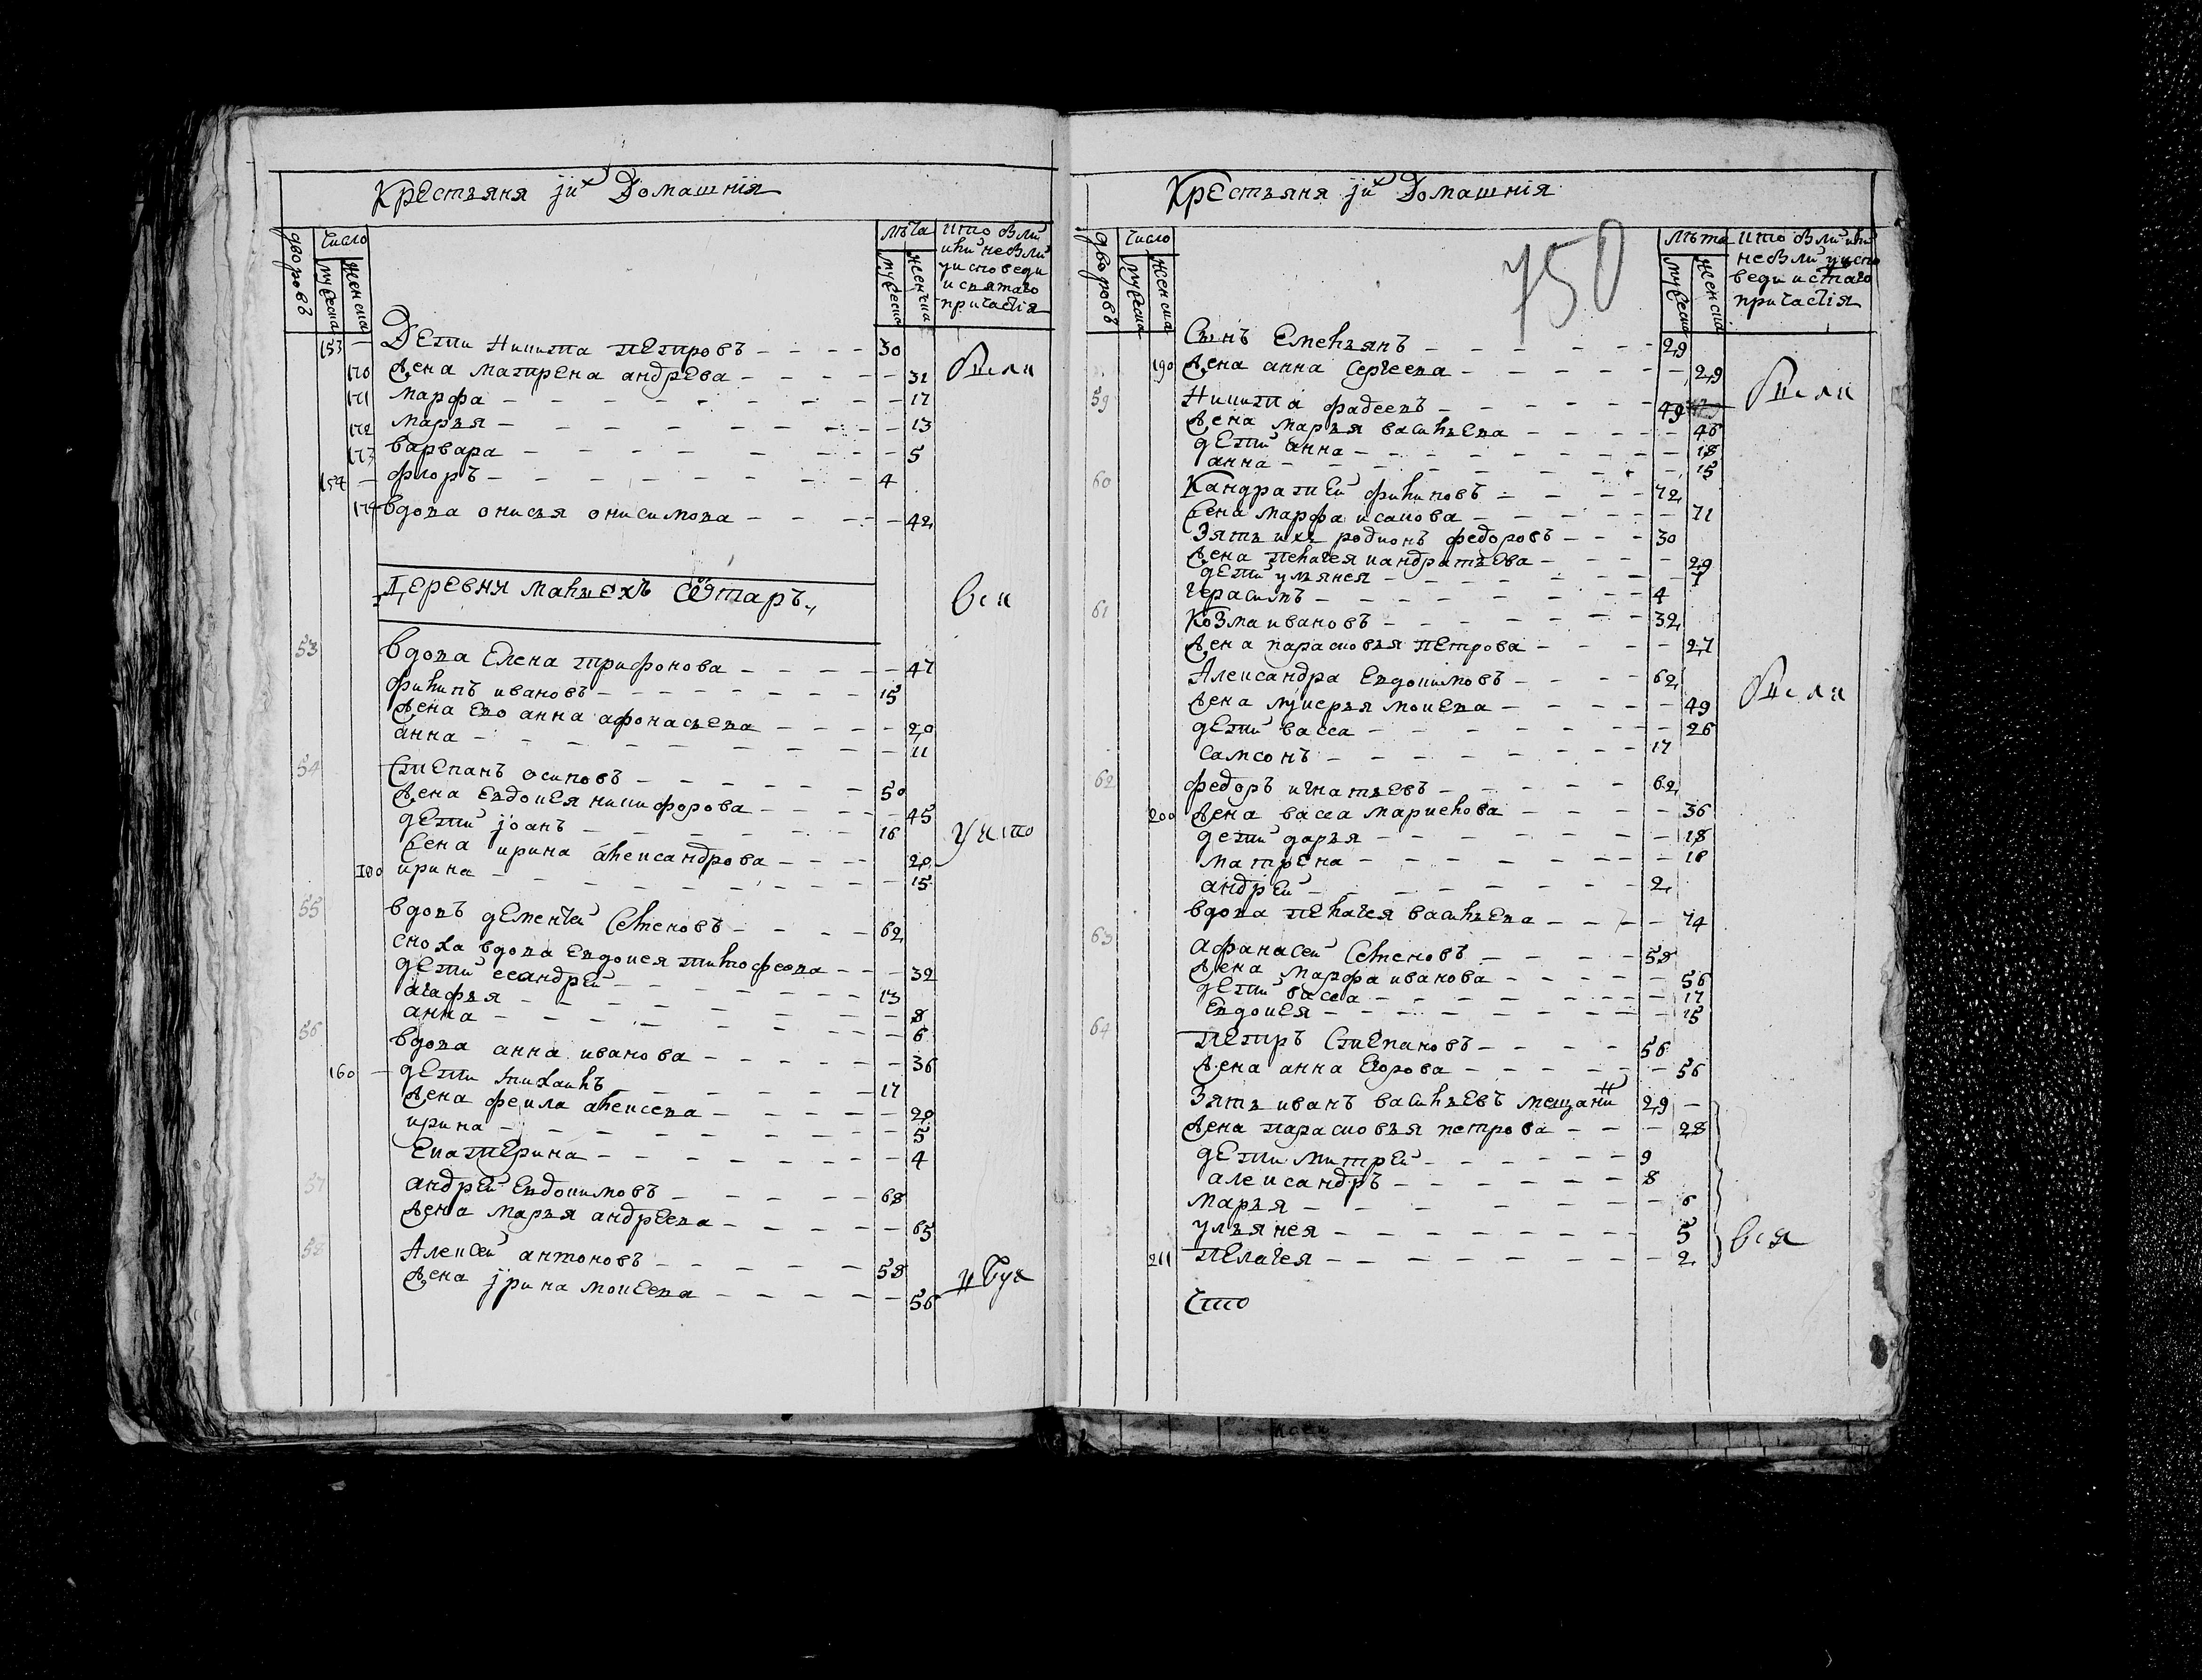 Крестьяня и их Домашнія
дворовъ
число
мужеска
женска
лѣта
мужеска
женска
кто были
или небыли
уисповеди
и святаго
причастія
153 — Дети Никита Петровъ — 30
170 Жена матрена андрева — 31 были
171 марфа — 17
172 марья — 13
173 варвара — 5
154 — флоръ — 4
174 вдова онисья онисимова — 42
Деревни
вси
53 вдова Елена трифонова — 47
филипъ ивановъ — 15
Жена Ево анна афонасьева — 20
анна — 11
54 Степанъ осиповъ — 50
Жена Евдокея никифорова — 45
дети іоанъ — 16
Жена ирина александрова — 20
180 ирина — 15
55 вдовъ дементеи Семеновъ — 62
сноха вдова Евдокея тимофеева — 32
дети андреи — 13
агафья — 8
анна — 6
56 вдова анна иванова — 36
160 — дети михаилъ — 17
Жена фекла алексева — 20
ирина — 5
Екатерина — 4
57 андреи Евдокимовъ — 68
Жена марья андреева — 65
58 Алексеи антоновъ — 58
Жена ірина мокеева — 56
Крестьяня и их Домашнія
750
дворовъ
число
мужеска
женска
лѣта
мужеска
женска
кто были или
небыли уиспо
веди и стаго
причастія
Сынъ Емельянъ — 29
190 Жена анна Сергеева — 29 были
59 Никита фадеевъ — 49
Жена марья васильева — 46
дети анна — 18
анна — 15
60 Кандратеи филиповъ — 72
Жена марфа исакова — 71
Зять ихъ родионъ федоровъ — 30
Жена пелагея кандратьева — 29
дети ульянея — 7
Герасимъ — 4
61 Козма ивановъ — 32
Жена парасковья петрова — 27
Александра Евдокимовъ — 62
Жена лукерья мокева — 49 были
дети васса — 26
самсонъ — 17
62 федоръ игнатьевъ — 62
200 Жена васса маркелова — 36
дети дарья — 18
матрена — 18
андреи — 2
вдова пелагея васильева — 74
63 Афанасеи Семеновъ — 58
Жена марфа иванова — 56
дети васса — 17
Евдокея — 15
64 Петръ Степановъ — 56
Жена анна Егорова — 56
Зять иванъ васильевъ мещанин 29 —
Жена парасковья петрова — 28
дети митреи — 9
александръ — 8
марья — 6
ульянея — 5
211 Пелагея — 2 вся
Что